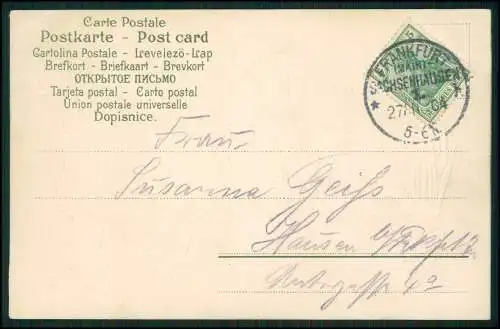 Carte Postale
Postkarte - Post card
Cartolina Postale - Levelező-Lap
Brefkort - Briefkaart - Brevkort
ОТКРЫТОЕ ПИСЬМО
Tarjeta postal - Carto postal
Union postale universelle
Dopisnice.
FRANKFURT
(MAIN)-
SACHSENHAUSEN
1.
5-6N.
Frau
Susanna Geiß
Hausen